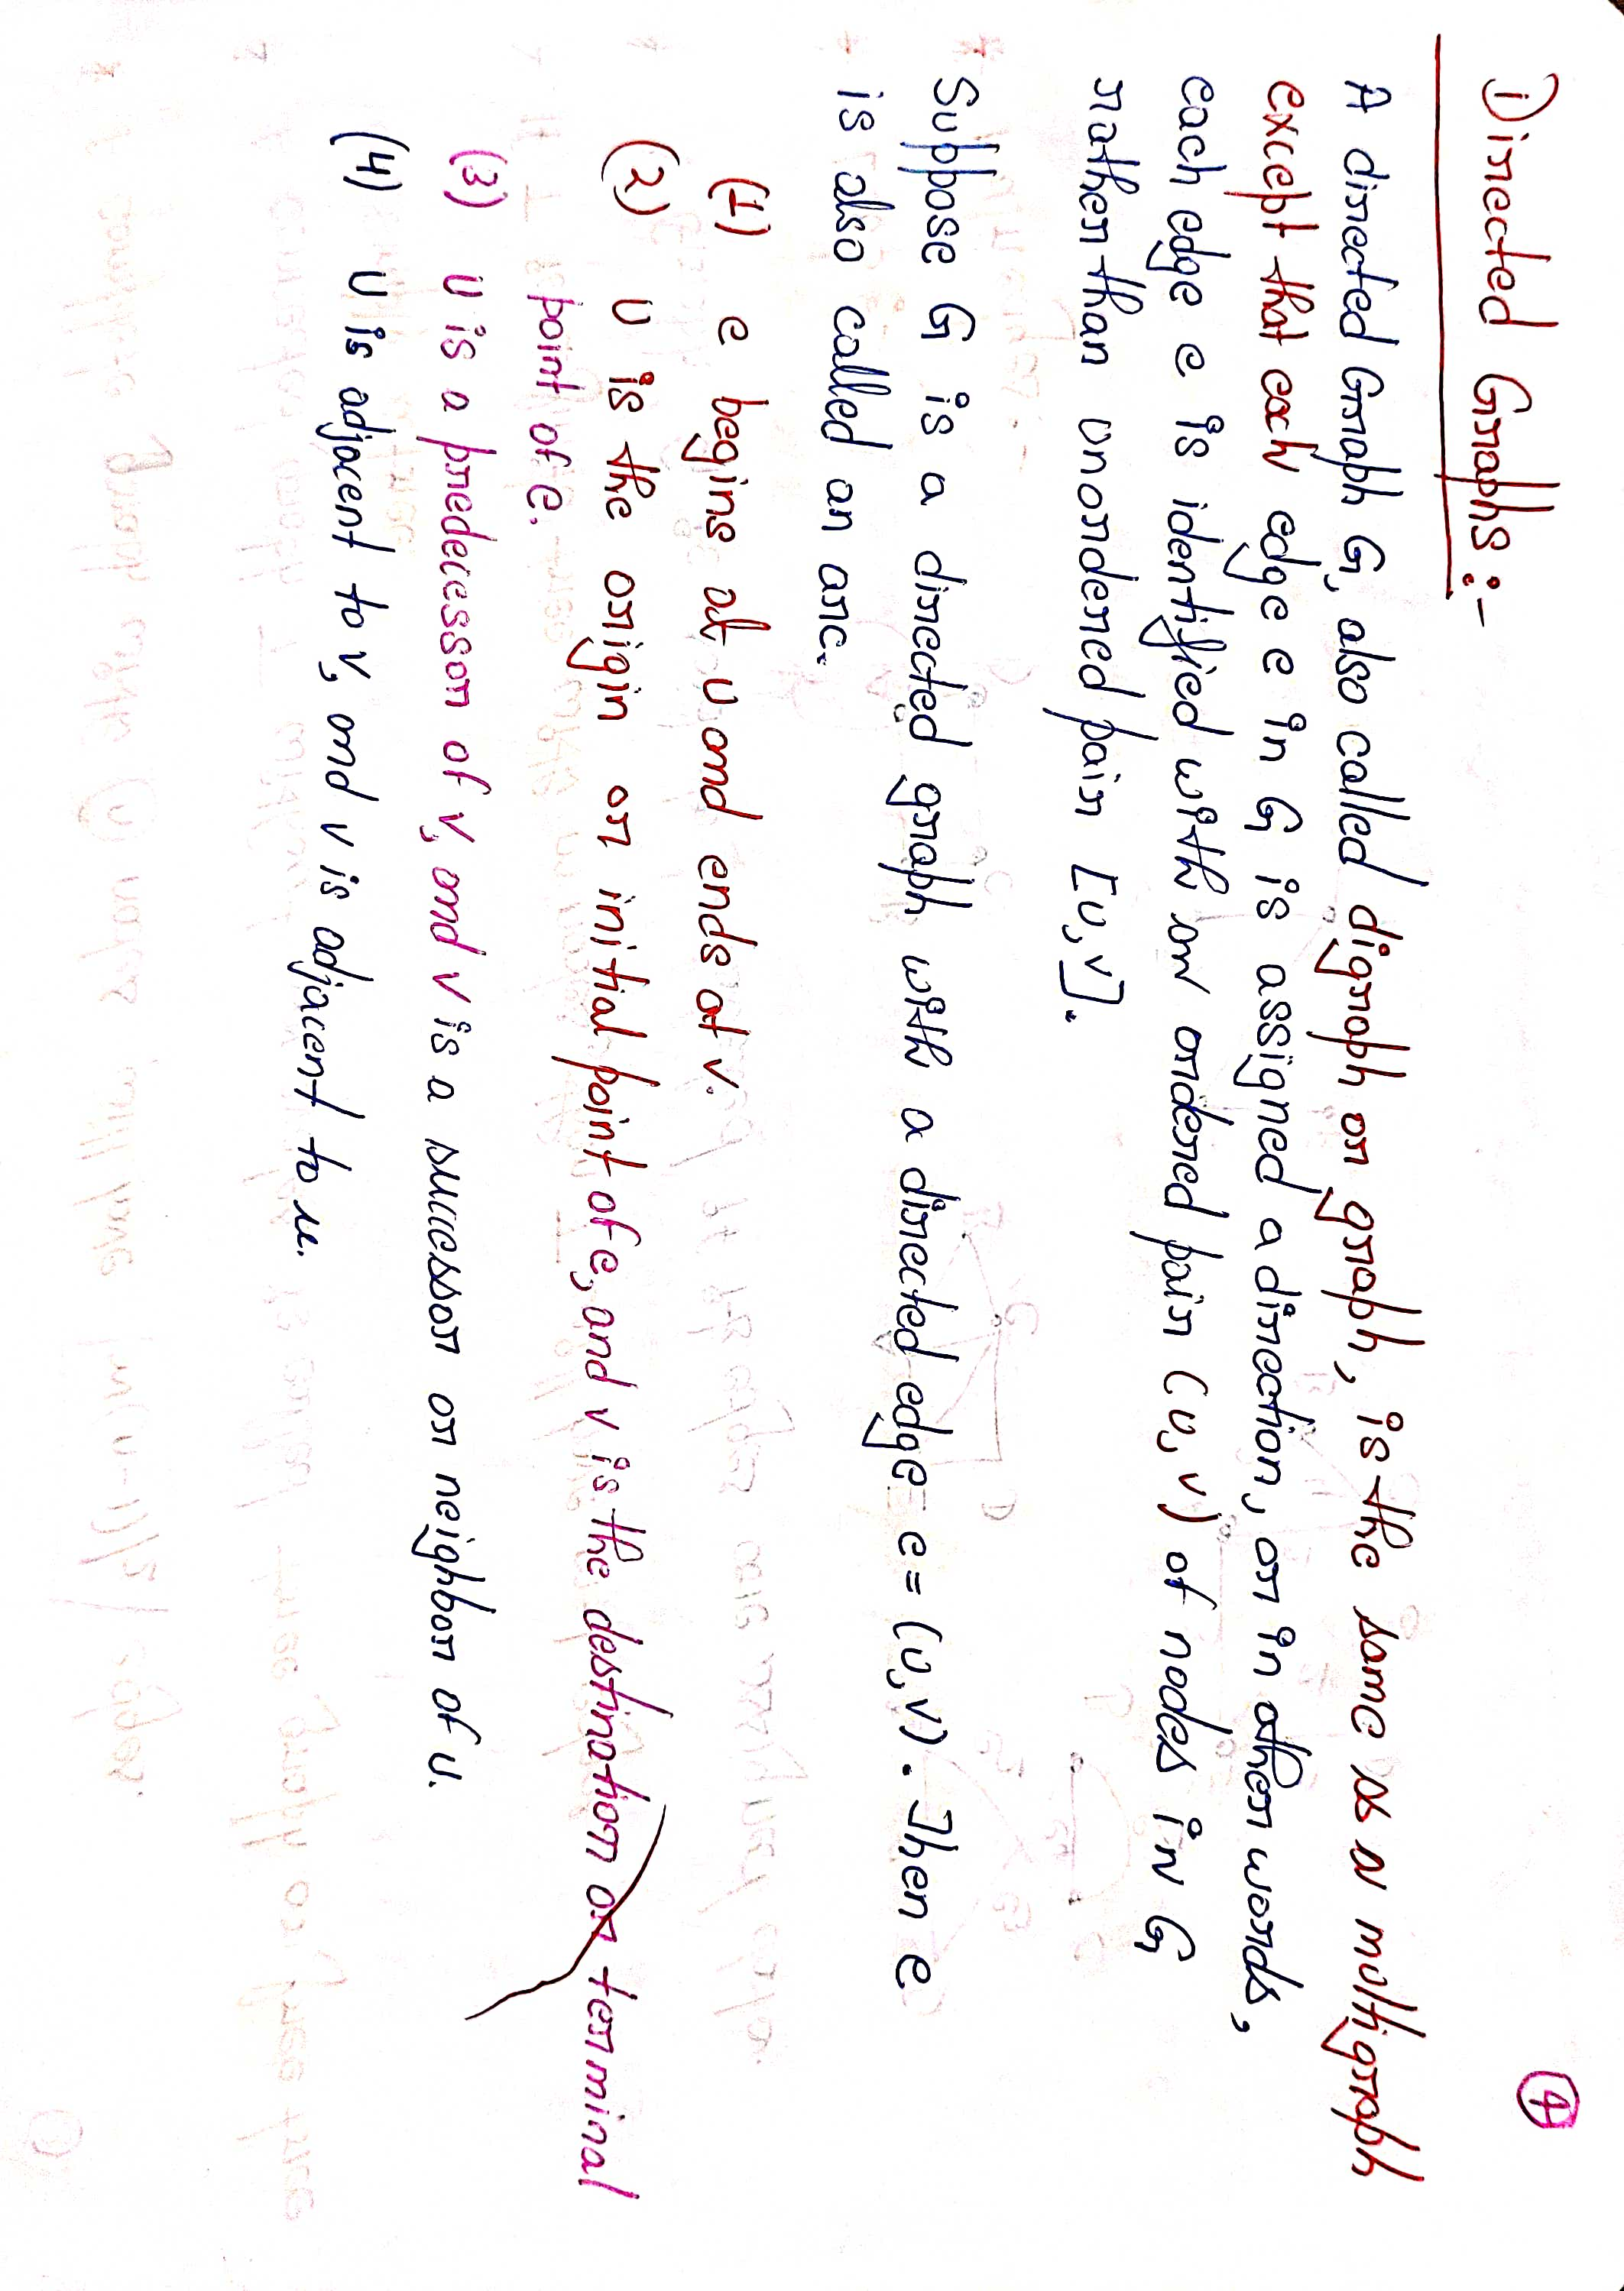 4
Directed Graphs:-
A directed Graph G, also called digraph or graph, is the same as a multigraph
except that each edge e in G is assigned a direction, or in other words,
each edge e is identified with an ordered pair (u, v) of nodes in G
rather than unordered pair [u, v].
Suppose G is a directed graph with a directed edge e = (u, v). Then e
is also called an arc.
(1) e begins at u and ends at v.
(2) u is the origin or initial point of e, and v is the destination or terminal
point of e.
(3) u is a predecessor of v, and v is a successor or neighbor of u.
(4) u is adjacent to v, and v is adjacent to u.